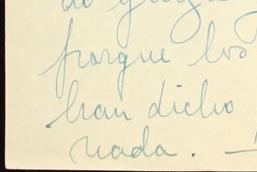 porque los
han dicho
nada. —